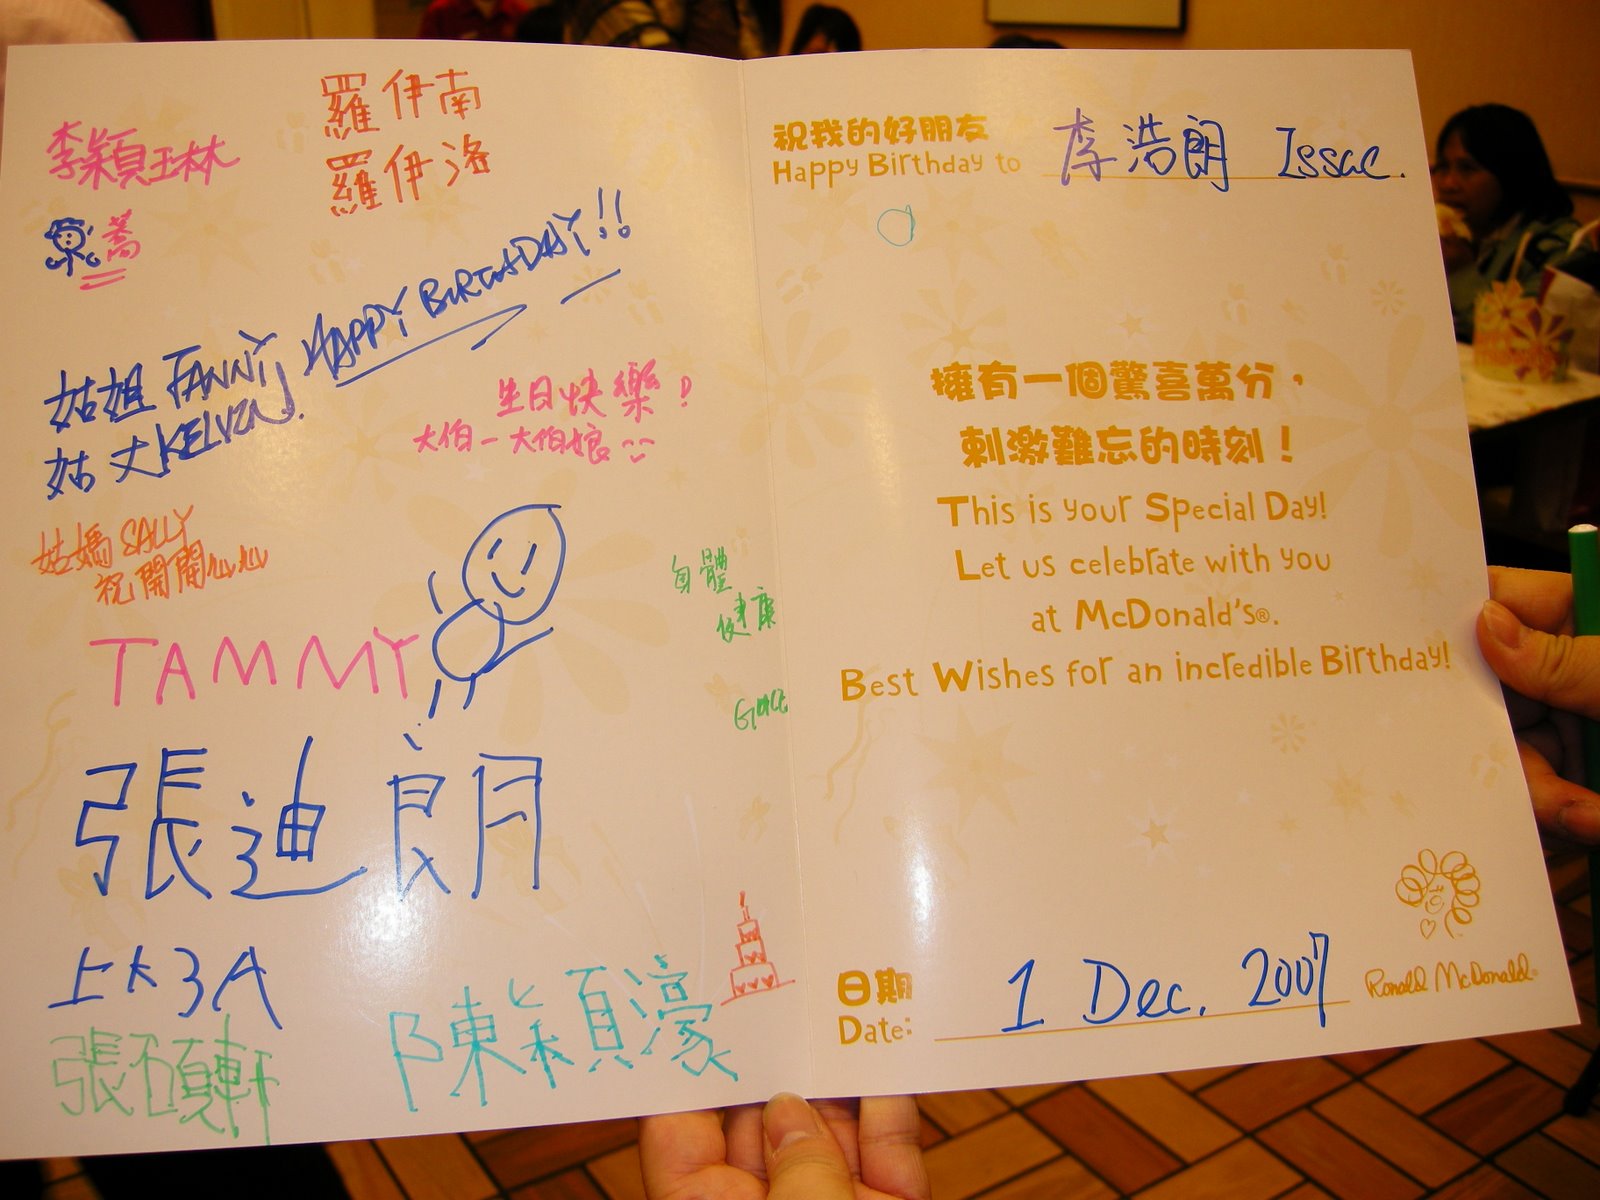 羅伊南
羅伊洛
李穎琳
喬
姑姐 FANNY HAPPY BIRTHDAY!!
姑丈 KELVIN.
生日快樂!
大伯一大伯娘
姑媽 SALLY
祝開開心心
身體
健康
Grace
TAMMY
張迪朗
上大3A
張碩軒
陳穎濠
祝我的好朋友
Happy Birthday to 李浩朗 Issac.
擁有一個驚喜萬分,
刺激難忘的時刻!
This is your Special Day!
Let us celebrate with you
at McDonald's®.
Best Wishes for an incredible Birthday!
日期
Date: 1 Dec. 2007
Ronald McDonald®